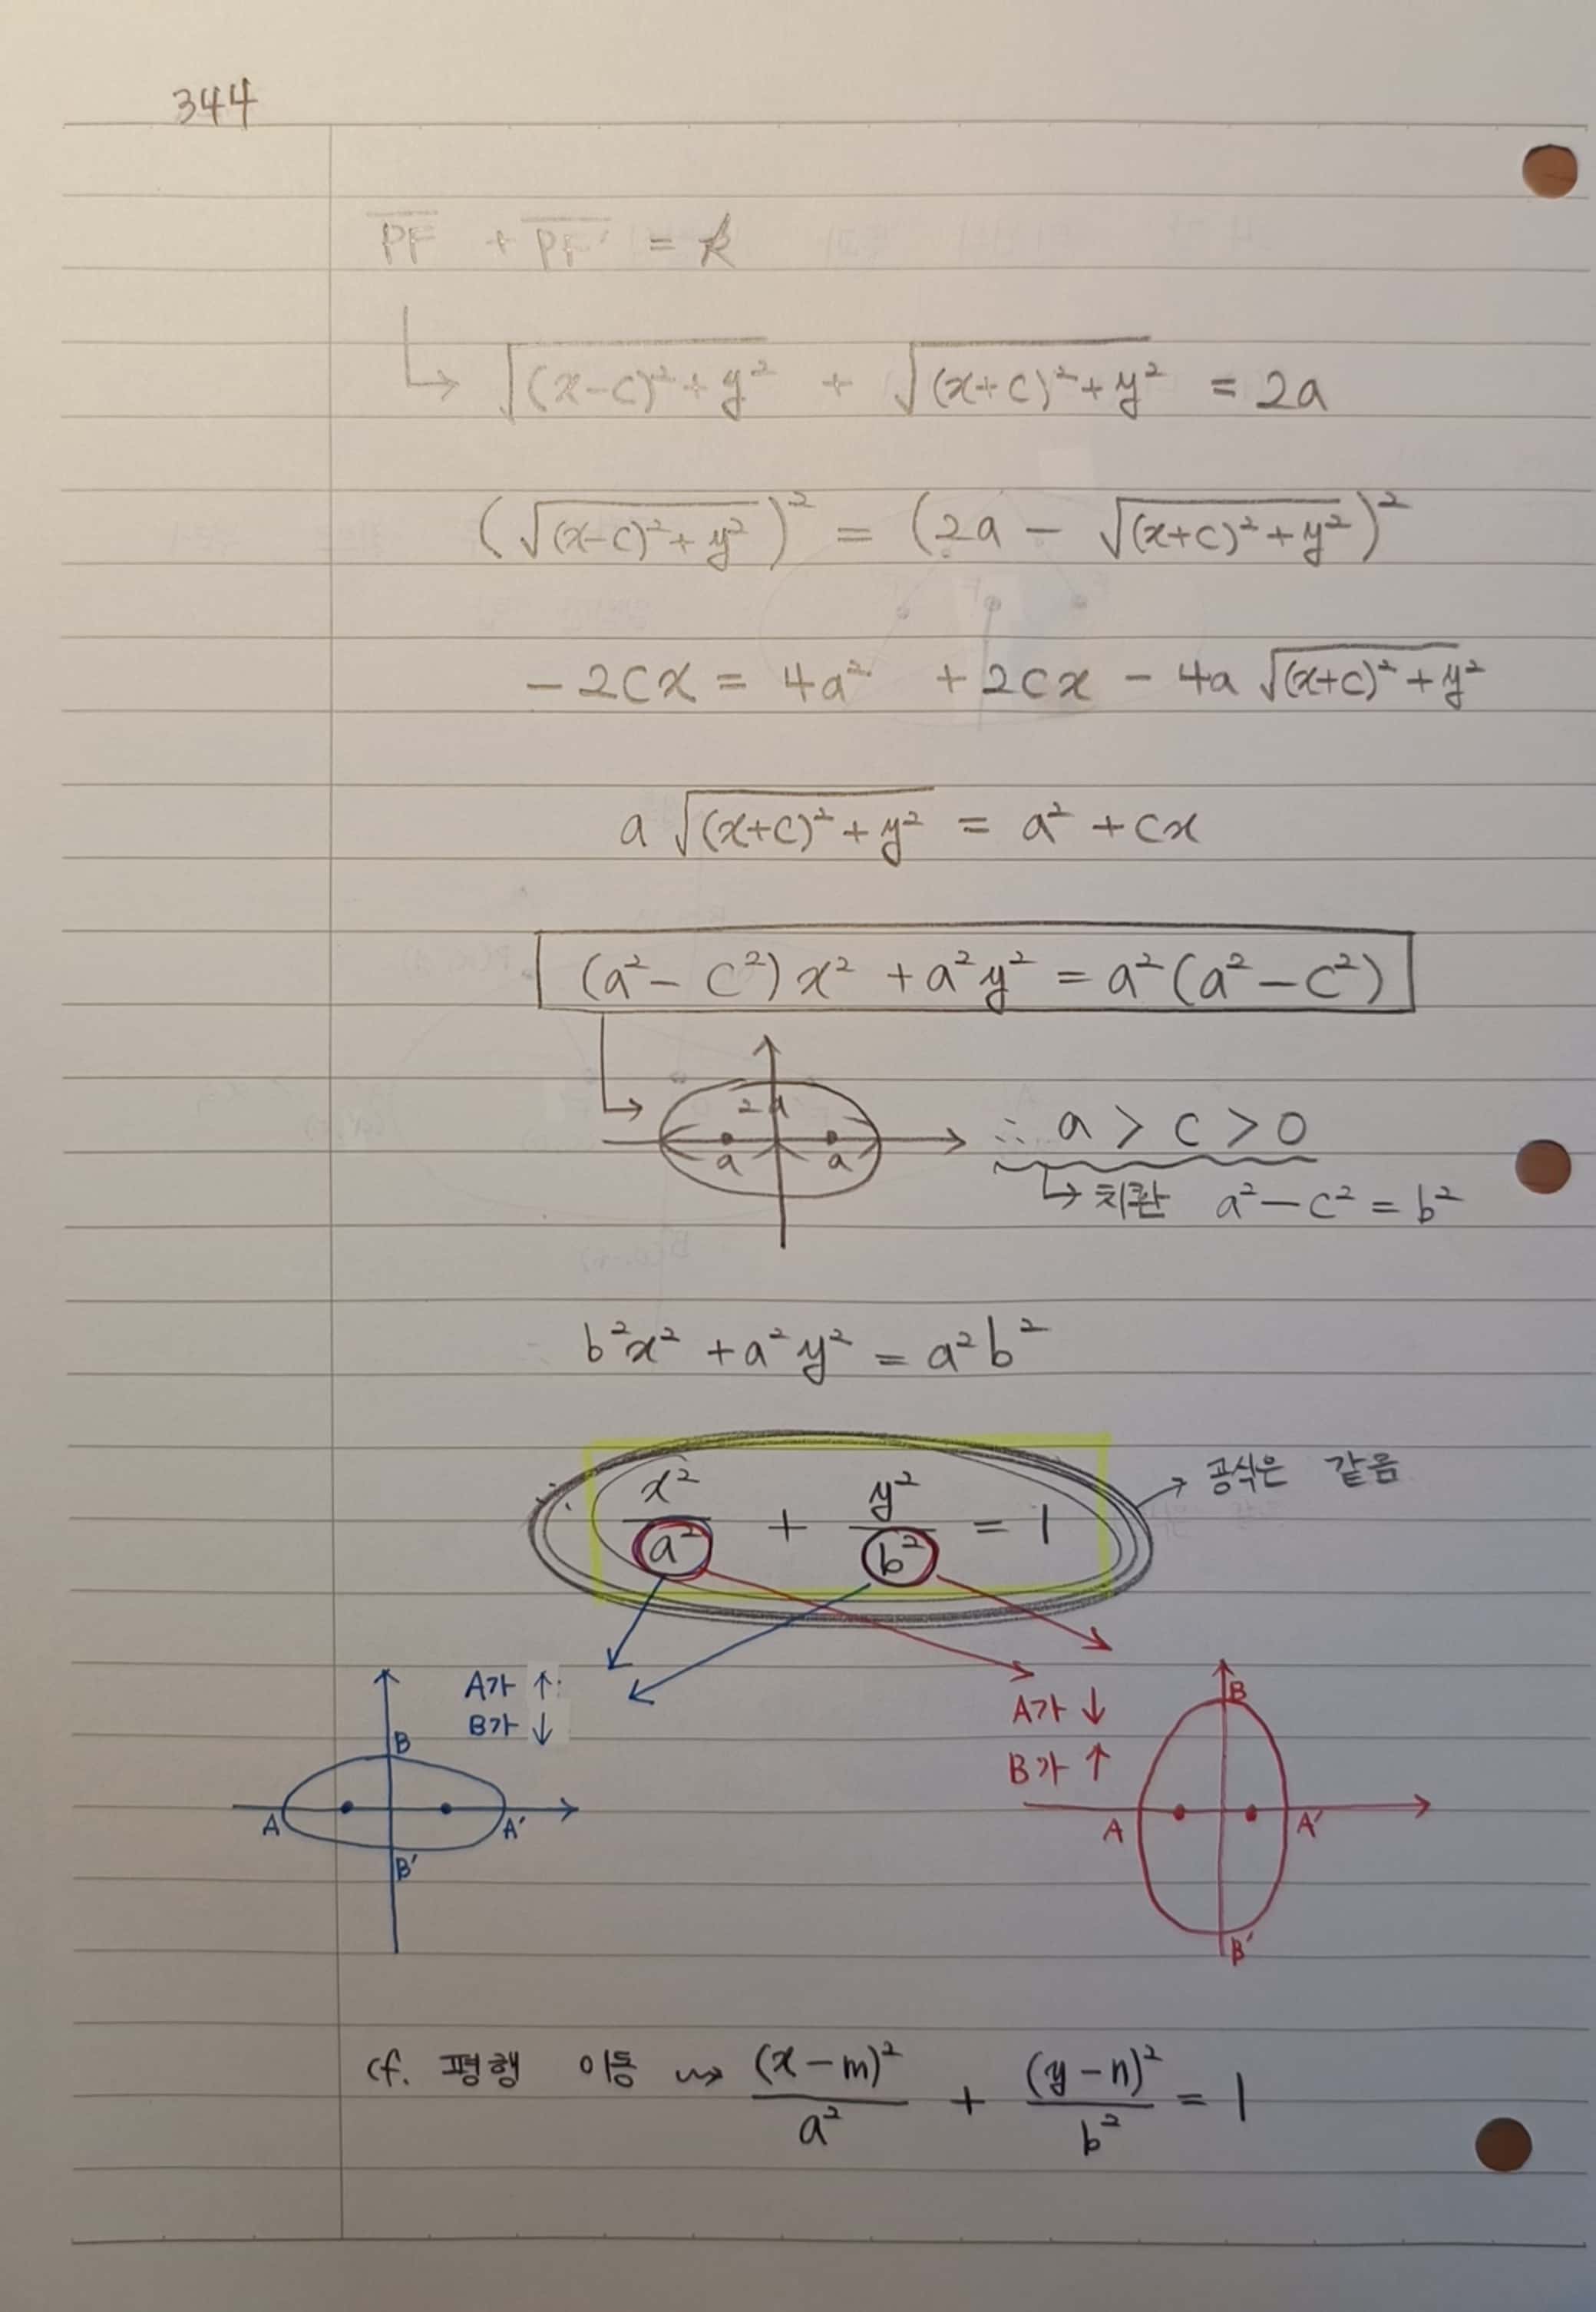 344
PF + PF' = k
↳ √(x-c)²+y² + √(x+c)²+y² = 2a
(√(x-c)²+y²)² = (2a - √(x+c)²+y²)²
-2cx = 4a² + 2cx - 4a √(x+c)²+y²
a √(x+c)²+y² = a² + cx
(a² - c²) x² + a²y² = a² (a² - c²)
2a
a a
∴ a > c > 0
↳ 치환 a² - c² = b²
b²x² + a²y² = a²b²
∴ x²/a² + y²/b² = 1 → 공식은 같음
A가 ↑
B가 ↓
B
A A'
B'
A가 ↓
B가 ↑
B
A A'
B'
cf. 평행 이동 ⇝ (x-m)²/a² + (y-n)²/b² = 1